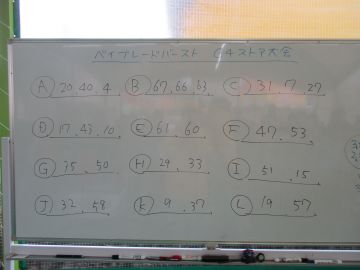 ベイブレードバースト G4ストア大会
Ⓐ 20.40.4. Ⓑ 67.66.63 Ⓒ 31.7.27
Ⓓ 17.43.10. Ⓔ 61.60 Ⓕ 47.53
Ⓖ 35.50 Ⓗ 29.33 Ⓘ 51.15.
Ⓙ 32.58 Ⓚ 9.37 Ⓛ 19.57